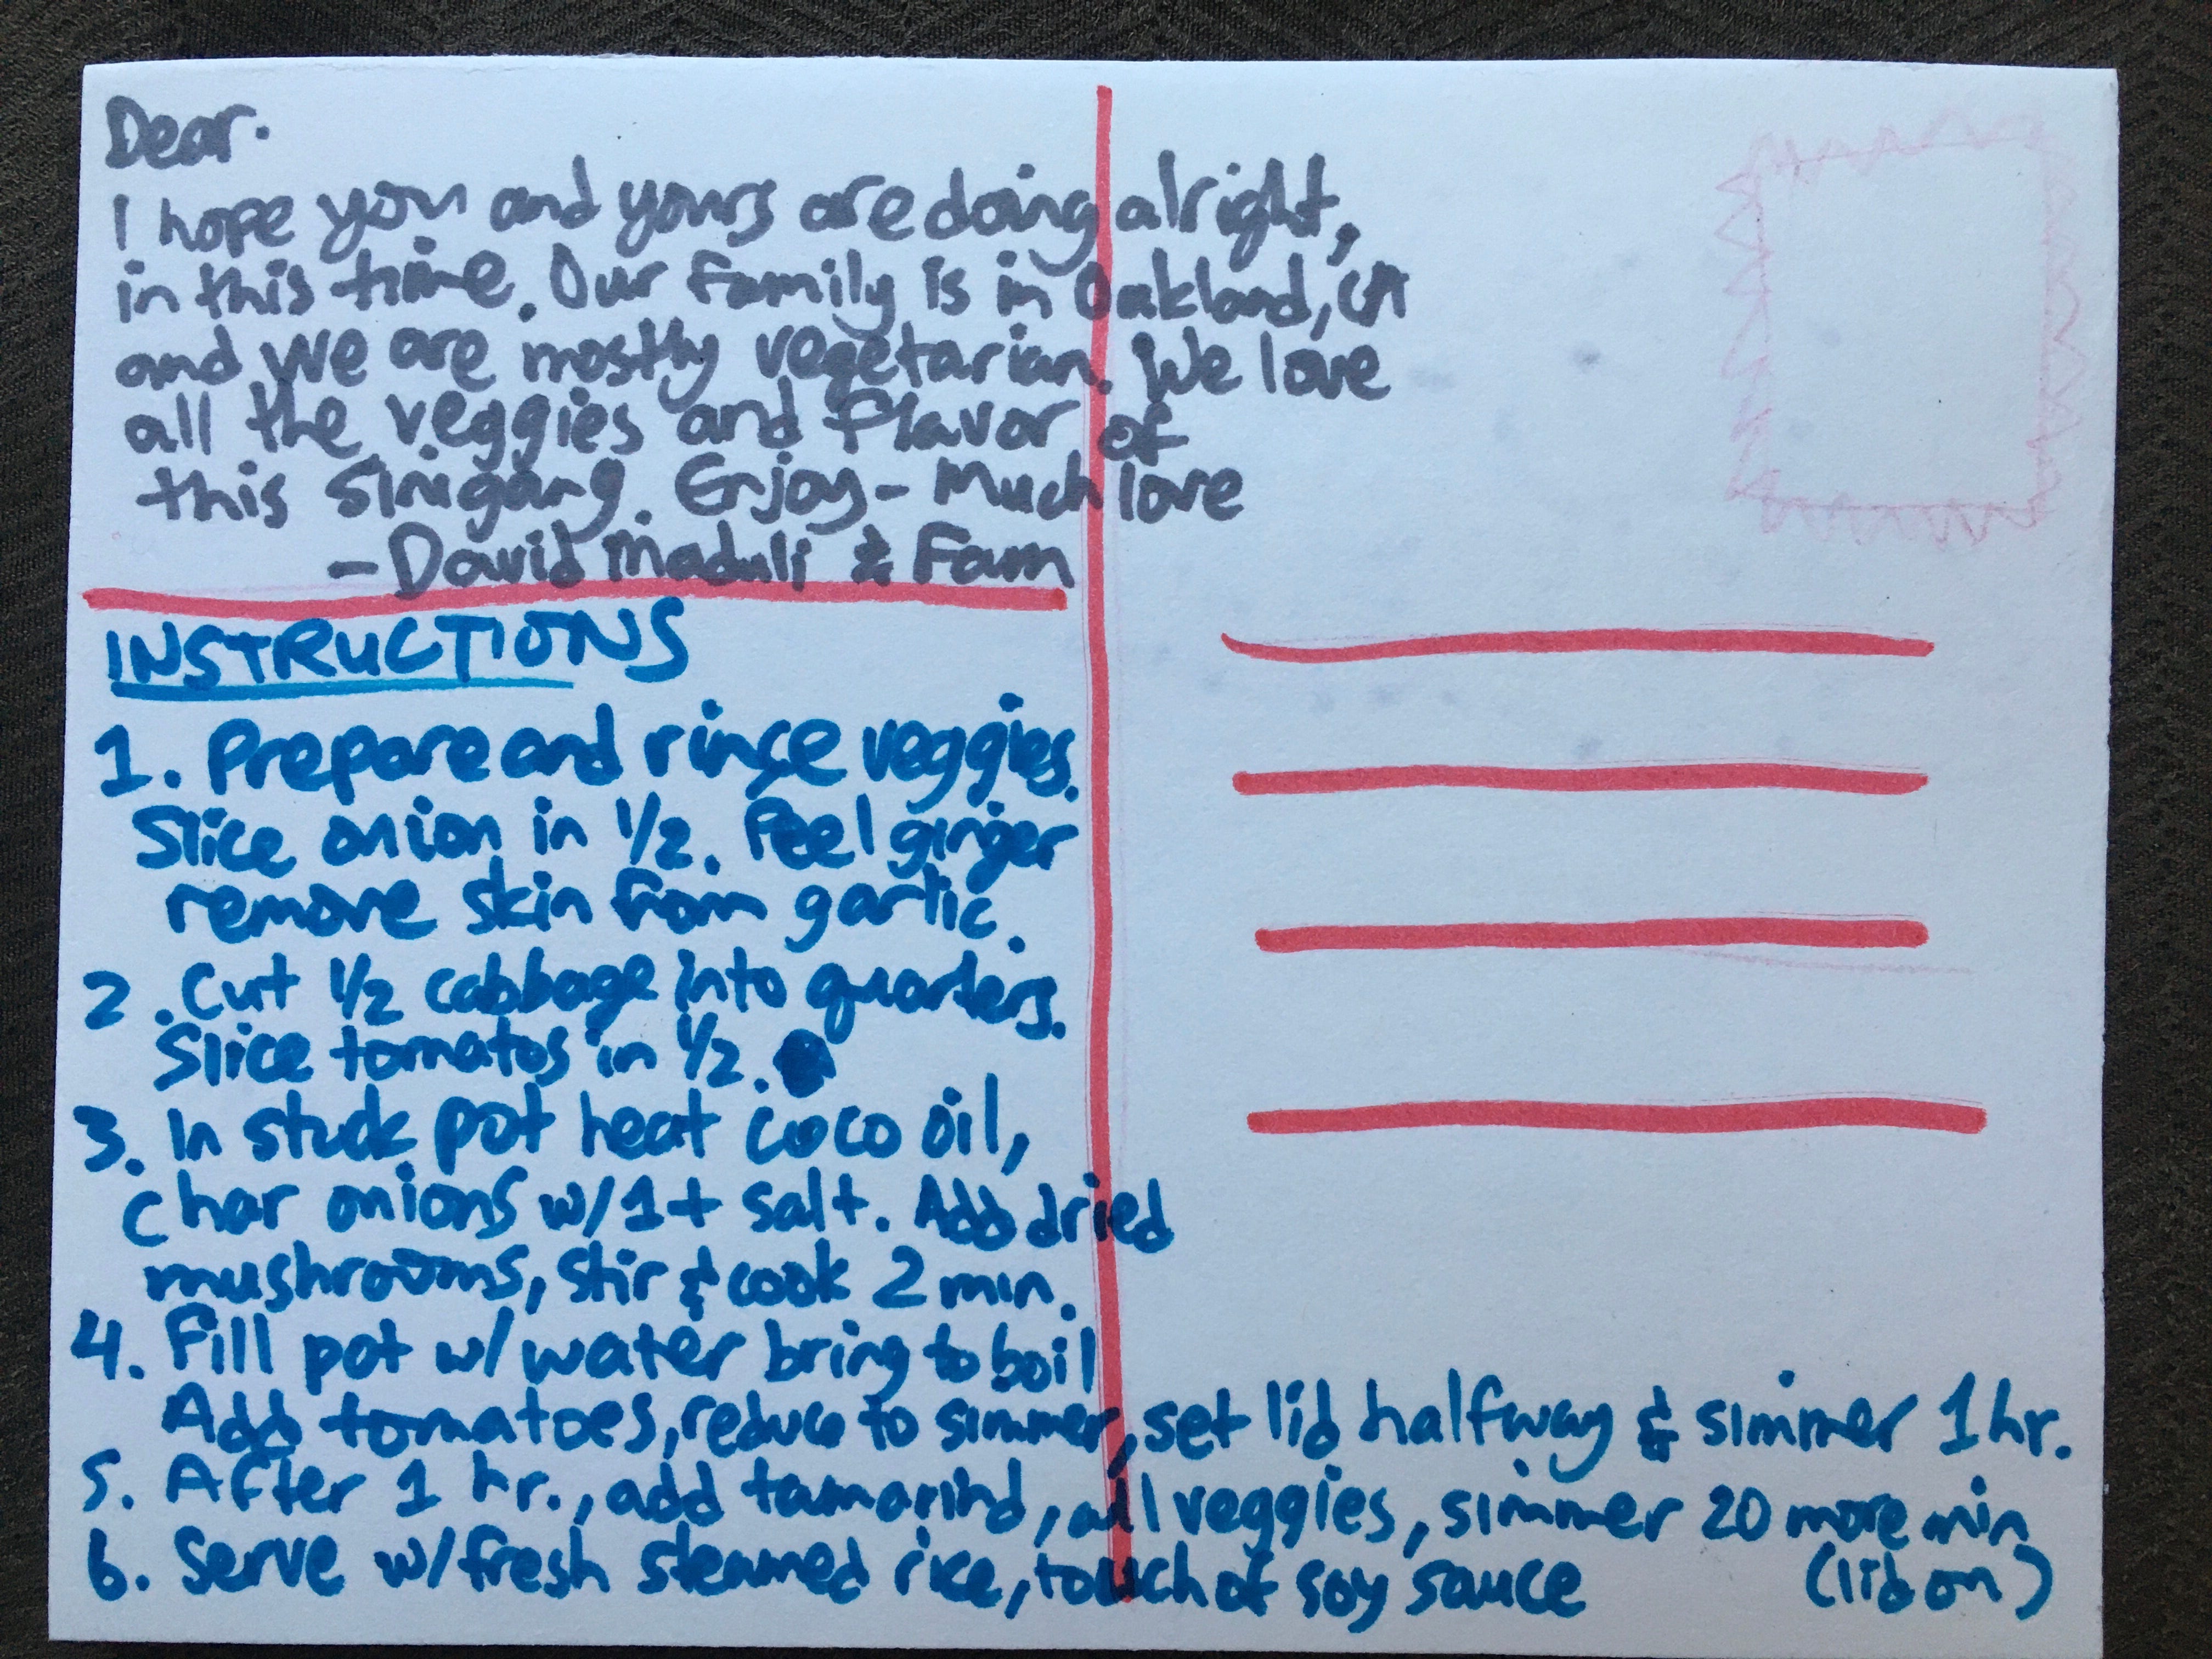 Dear.
I hope you and yours are doing alright,
in this time. Our family is in Oakland, CA
and we are mostly vegetarian. We love
all the veggies and flavor of
this Sinigang. Enjoy - Much love
- David Maduli & Fam
INSTRUCTIONS
1. Prepare and rinse veggies.
Slice onion in 1/2. Peel ginger
remove skin from garlic.
2. Cut 1/2 cabbage into quarters.
Slice tomatos in 1/2.
3. In stock pot heat coco oil,
char onions w/ 1t salt. Add dried
mushrooms, stir & cook 2 min.
4. Fill pot w/ water bring to boil
Add tomatoes, reduce to simmer, set lid halfway & simmer 1 hr.
5. After 1 hr., add tamarind, all veggies, simmer 20 more min
(lid on)
6. Serve w/ fresh steamed rice, touch of soy sauce